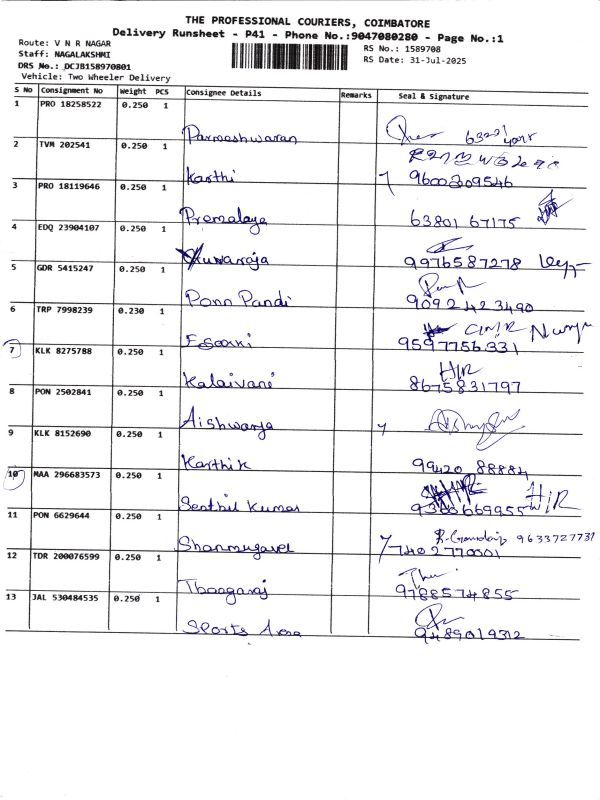 THE PROFESSIONAL COURIERS, COIMBATORE
Delivery Runsheet - P41 - Phone No.:9047080280 - Page No.:1
Route: V N R NAGAR
Staff: NAGALAKSHMI
DRS No.: DCJB158970801
Vehicle: Two Wheeler Delivery
RS No.: 1589708
RS Date: 31-Jul-2025
S No Consignment No Weight PCS Consignee Details Remarks Seal & Signature
1 PRO 18258522 0.250 1
Parmeshwaran
2 TVM 202541 0.250 1
Karthi 9600209546
3 PRO 18119646 0.250 1
Premalaya 63801 67175
4 EDQ 23904107 0.250 1
9976587278
5 GDR 5415247 0.250 1
Ponn Pandi 9092423490
6 TRP 7998239 0.230 1
9597756331
7 KLK 8275788 0.250 1
H/R
Kalaivani 8675831797
8 PON 2502841 0.250 1
Aishwarya
9 KLK 8152690 0.250 1
Karthik 99420 88884
10 MAA 296683573 0.250 1
H/R
Senthil Kumar
11 PON 6629644 0.250 1
9633727731
Shanmugavel 7402770001
12 TDR 200076599 0.250 1
Thangaraj 9788574855
13 JAL 530484535 0.250 1
Sports Area 9489019312